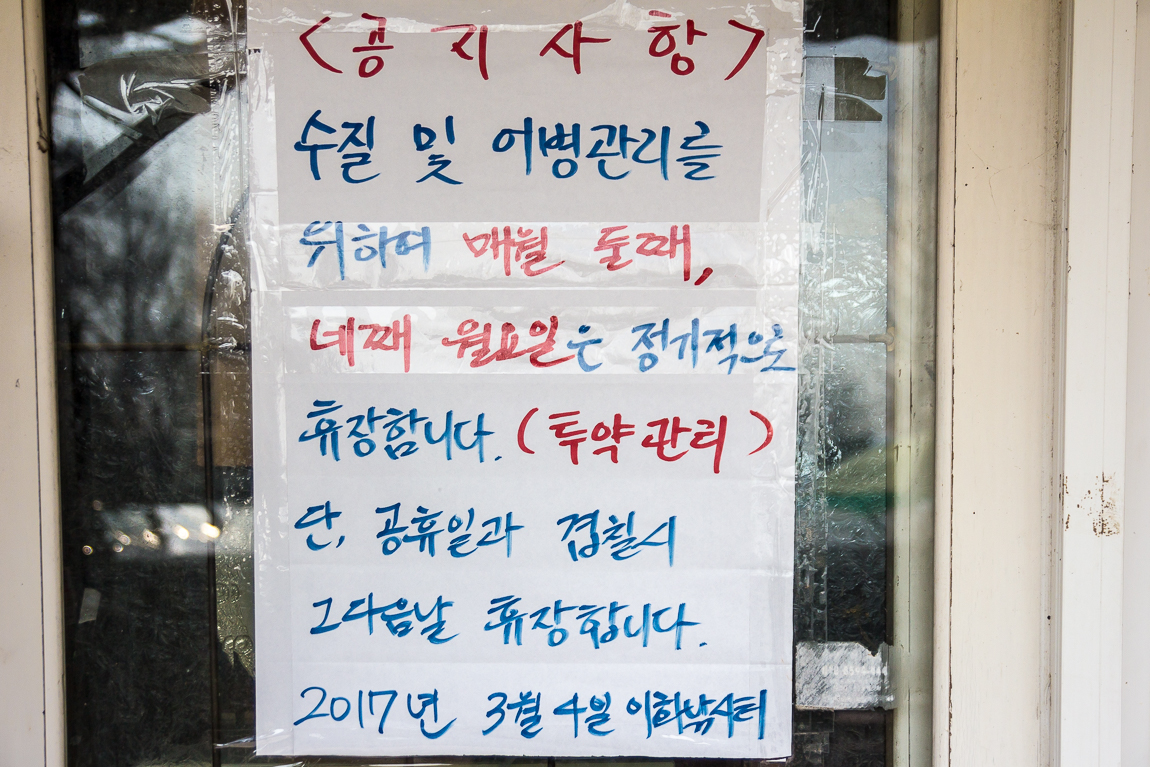 <공지사항>
수질 및 어병관리를
위하여 매월 둘째,
네째 월요일은 정기적으로
휴장합니다. (투약관리)
단, 공휴일과 겹칠시
그다음날 휴장합니다.
2017년 3월 4일 이하낚시터